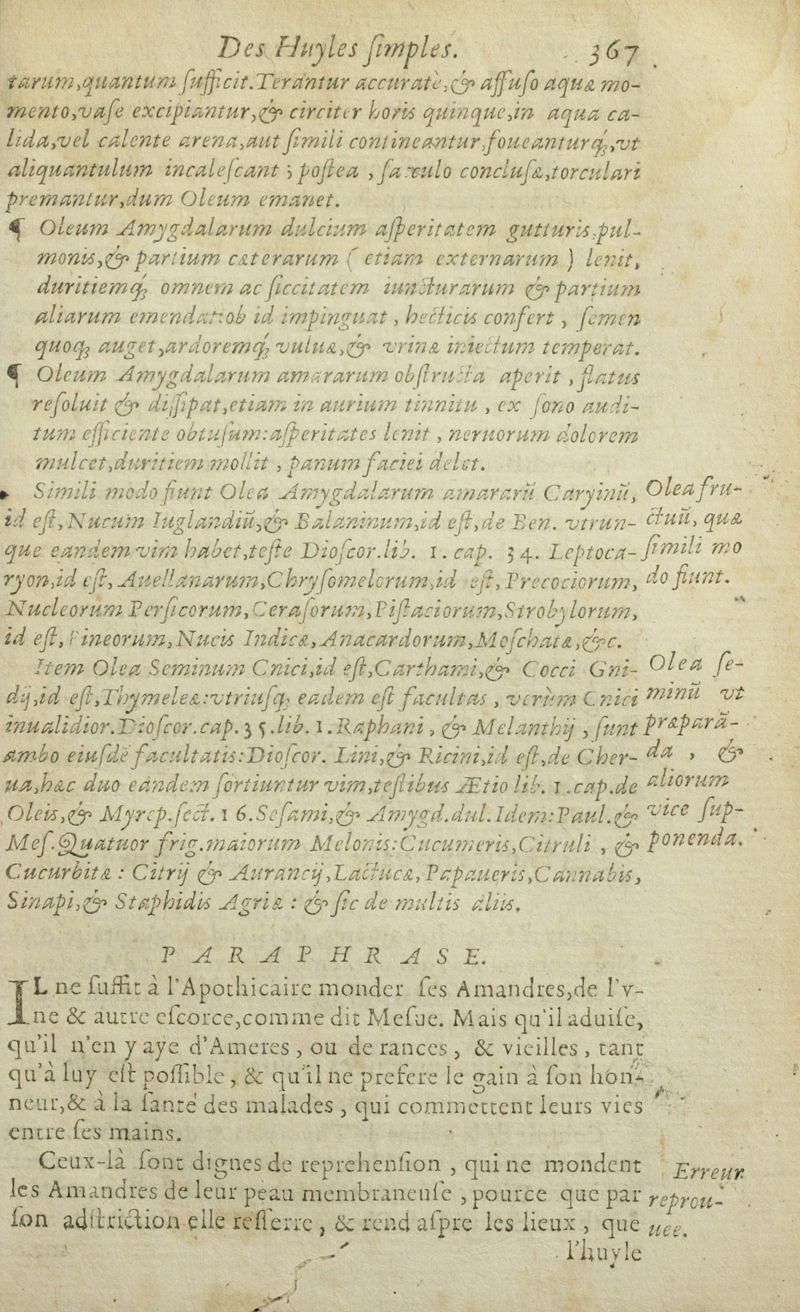 Des Huyles ſimples. 367
tarum,quantum ſufficit.Terantur accuratè,& affuſo aquæ mo-
mento,vaſe excipiantur,& circiter horis quinque,in aqua ca-
lida,vel calente arena,aut ſimili contineantur,foueanturq;,vt
aliquantulum incaleſcant; poſtea , ſacculo concluſæ,torculari
premantur,dum Oleum emanet.
¶ Oleum Amygdalarum dulcium aſperitatem gutturis,pul-
monis,& partium cæterarum ( etiam externarum ) lenit,
duritiemq; omnem ac ſiccitatem iuncturarum & partium
aliarum emendat:ob id impinguat , hecticis confert , ſemen
quoq; auget,ardoremq; vuluæ,& vrinæ iniectum temperat.
¶ Oleum Amygdalarum amararum obſtructa aperit , flatus
reſoluit & diſſipat,etiam in aurium tinnitu , ex ſono audi-
tum efficiente obtuſum:aſperitates lenit , neruorum dolorem
mulcet,duritiem mollit , panum faciei delet.
Simili modo fiunt Olea Amygdalarum amararū Caryinū, Olea fru-
id eſt,Nucum Iuglandiū,& Balaninum,id eſt,de Ben. vtrun- ctuū, quæ
que eandem vim habet,teſte Dioſcor.lib. 1. cap. 34. Leptoca- ſimili mo
ryon,id eſt, Auellanarum,Chryſomelorum,id eſt, Precociorum, do fiunt.
Nucleorum Perſicorum,Ceraſorum,Piſtaciorum,Strobylorum,
id eſt, Pineorum,Nucis Indicæ,Anacardorum,Moſchatæ,&c.
Item Olea Seminum Cnici,id eſt,Carthami,& Cocci Gni- Olea ſe-
dij,id eſt,Thymeleæ:vtriuſq; eadem eſt facultas , verùm Cnici minū vt
inualidior.Dioſcor.cap. 35.lib. 1.Raphani , & Melanthij , ſunt præpara-
ambo eiuſdē facultatis:Dioſcor. Lini,& Ricini,id eſt,de Cher- da , &
ua,hæc duo eandem ſortiuntur vim,teſtibus Ætio lib. 1.cap.de aliorum
Oleis,& Myrep.ſect. 1 6.Seſami,& Amygd.dul.Idem:Paul.& vice ſup-
Meſ.Quatuor frig.maiorum Melonis:Cucumeris,Citruli , & ponenda.
Cucurbitæ : Citrij & Aurancij,Lactucæ,Papaueris,Cannabis,
Sinapi,& Staphidis Agriæ : & ſic de multis aliis.
PARAPHRASE.
IL ne ſuffit à l'Apothicaire monder ſes Amandres,de l'v-
ne & autre eſcorce,comme dit Meſue. Mais qu'il aduiſe,
qu'il n'en y aye d'Ameres , ou de rances , & vieilles , tant
qu'à luy eſt poſſible , & qu'il ne prefere le gain à ſon hon-
neur,& à la ſanté des malades , qui commettent leurs vies
entre ſes mains.
Ceux-là ſont dignes de reprehenſion , qui ne mondent Erreur
les Amandres de leur peau membraneuſe , pource que par reprou-
ſon adſtriction elle reſſerre , & rend aſpre les lieux , que uee.
l'huyle